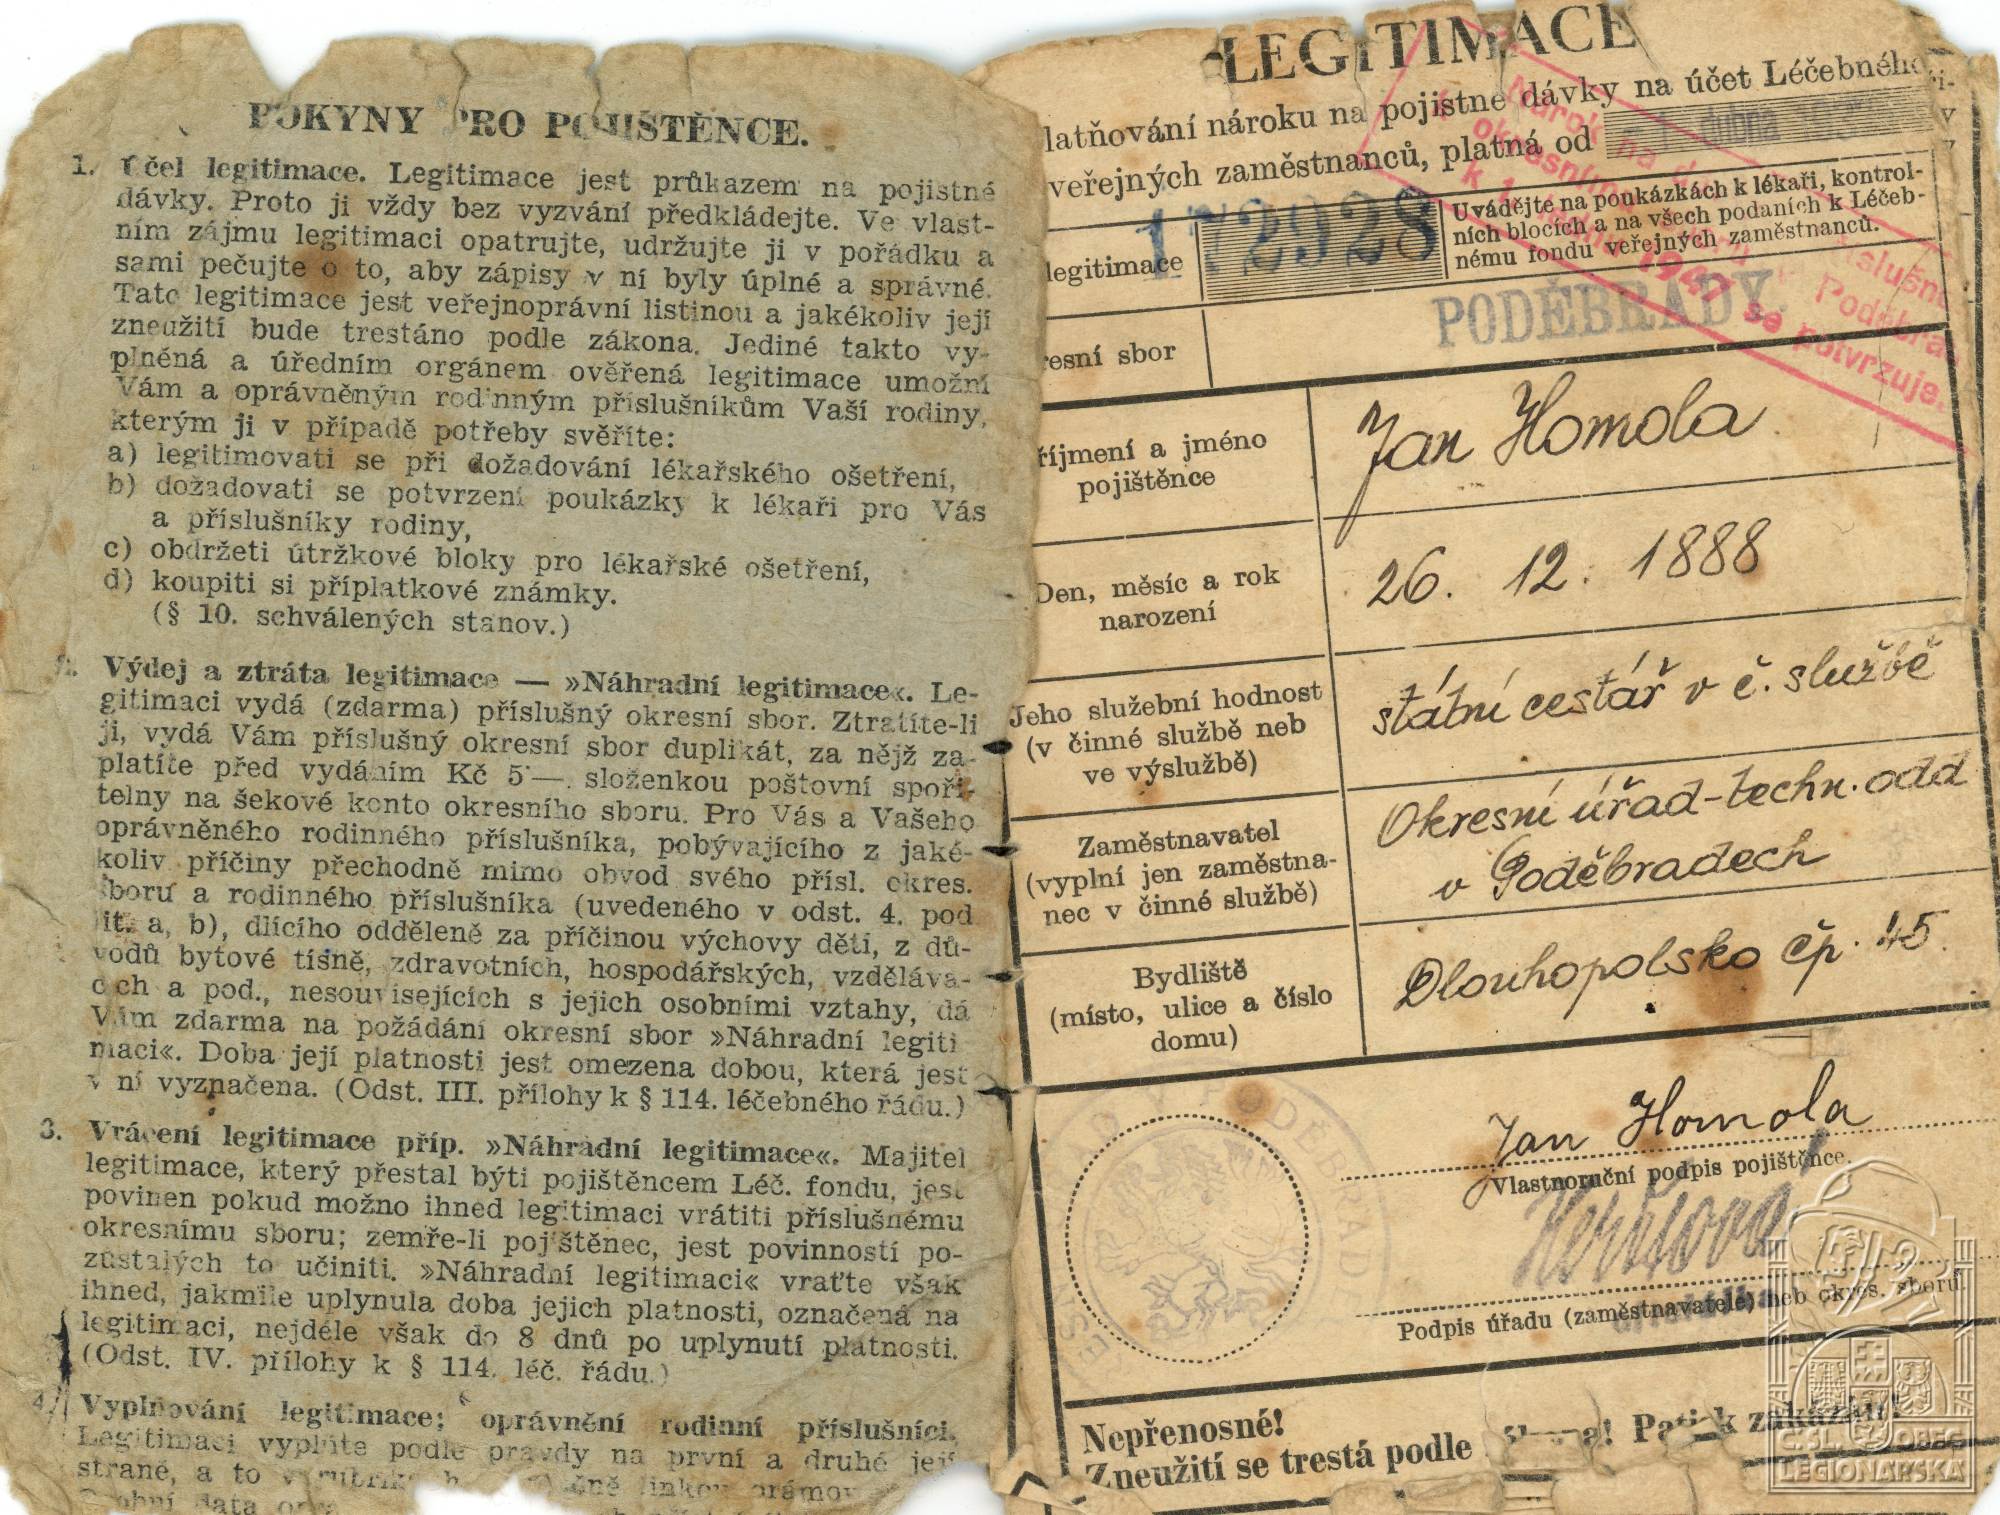 POKYNY PRO POJIŠTĚNCE.
1. Účel legitimace. Legitimace jest průkazem na pojistné
dávky. Proto ji vždy bez vyzvání předkládejte. Ve vlast-
ním zájmu legitimaci opatrujte, udržujte ji v pořádku a
sami pečujte o to, aby zápisy v ní byly úplné a správné.
Tato legitimace jest veřejnoprávní listinou a jakékoliv její
zneužití bude trestáno podle zákona. Jediné takto vy-
plněná a úředním orgánem ověřená legitimace umožní
Vám a oprávněným rodinným příslušníkům Vaší rodiny,
kterým ji v případě potřeby svěříte:
a) legitimovati se při dožadování lékařského ošetření,
b) dožadovati se potvrzení poukázky k lékaři pro Vás
a příslušníky rodiny,
c) obdržeti útržkové bloky pro lékařské ošetření,
d) koupiti si příplatkové známky.
(§ 10. schválených stanov.)
2. Výdej a ztráta legitimace — »Náhradní legitimace«. Le-
gitimaci vydá (zdarma) příslušný okresní sbor. Ztratíte-li
ji, vydá Vám příslušný okresní sbor duplikát, za nějž za-
platíte před vydáním Kč 5·— složenkou poštovní spoři-
telny na šekové konto okresního sboru. Pro Vás a Vašeho
oprávněného rodinného příslušníka, pobývajícího z jaké-
koliv příčiny přechodně mimo obvod svého přísl. okres.
sboru a rodinného příslušníka (uvedeného v odst. 4. pod
lit. a, b), dlícího odděleně za příčinou výchovy dětí, z dů-
vodů bytové tísně, zdravotních, hospodářských, vzděláva-
cích a pod., nesouvisejících s jejich osobními vztahy, dá
Vám zdarma na požádání okresní sbor »Náhradní legiti
maci«. Doba její platnosti jest omezena dobou, která jest
v ní vyznačena. (Odst. III. přílohy k § 114. léčebného řádu.)
3. Vrácení legitimace příp. »Náhradní legitimace«. Majitel
legitimace, který přestal býti pojištěncem Léč. fondu, jest
povinen pokud možno ihned legitimaci vrátiti příslušnému
okresnímu sboru; zemře-li pojištěnec, jest povinností po-
zůstalých to učiniti. »Náhradní legitimaci« vraťte však
ihned, jakmile uplynula doba jejich platnosti, označená na
legitimaci, nejdéle však do 8 dnů po uplynutí platnosti.
(Odst. IV. přílohy k § 114. léč. řádu.)
4. Vyplňování legitimace; oprávnění rodinní příslušníci.
Legitimaci vyplňte podle pravdy na první a druhé její
straně, a to v rubrikách linkou orámov
Osobní data
LEGITIMACE
latňování nároku na pojistné dávky na účet Léčebného
veřejných zaměstnanců, platná od 1. dubna
legitimace 172928
Uvádějte na poukázkách k lékaři, kontrol-
ních blocích a na všech podaních k Léčeb-
nému fondu veřejných zaměstnanců.
Nárok na
okresním
k 1. 1947 se potvrzuje.
příslušn
Poděbrad
resní sbor PODĚBRADY.
říjmení a jméno
pojištěnce
Jan Homola
Den, měsíc a rok
narození
26. 12. 1888
Jeho služební hodnost
(v činné službě neb
ve výslužbě)
státní cestář v č. službě
Zaměstnavatel
(vyplní jen zaměstna-
nec v činné službě)
Okresní úřad-techn. odd
v Poděbradech
Bydliště
(místo, ulice a číslo
domu)
Dlouhopolsko čp. 45.
Jan Homola
Vlastnoruční podpis pojištěnce.
Podpis úřadu (zaměstnavatele) neb okres. sboru.
Nepřenosné!
Zneužití se trestá podle zákona! Padělek zakázán!
ČSL. OBEC
LEGIONÁŘSKÁ